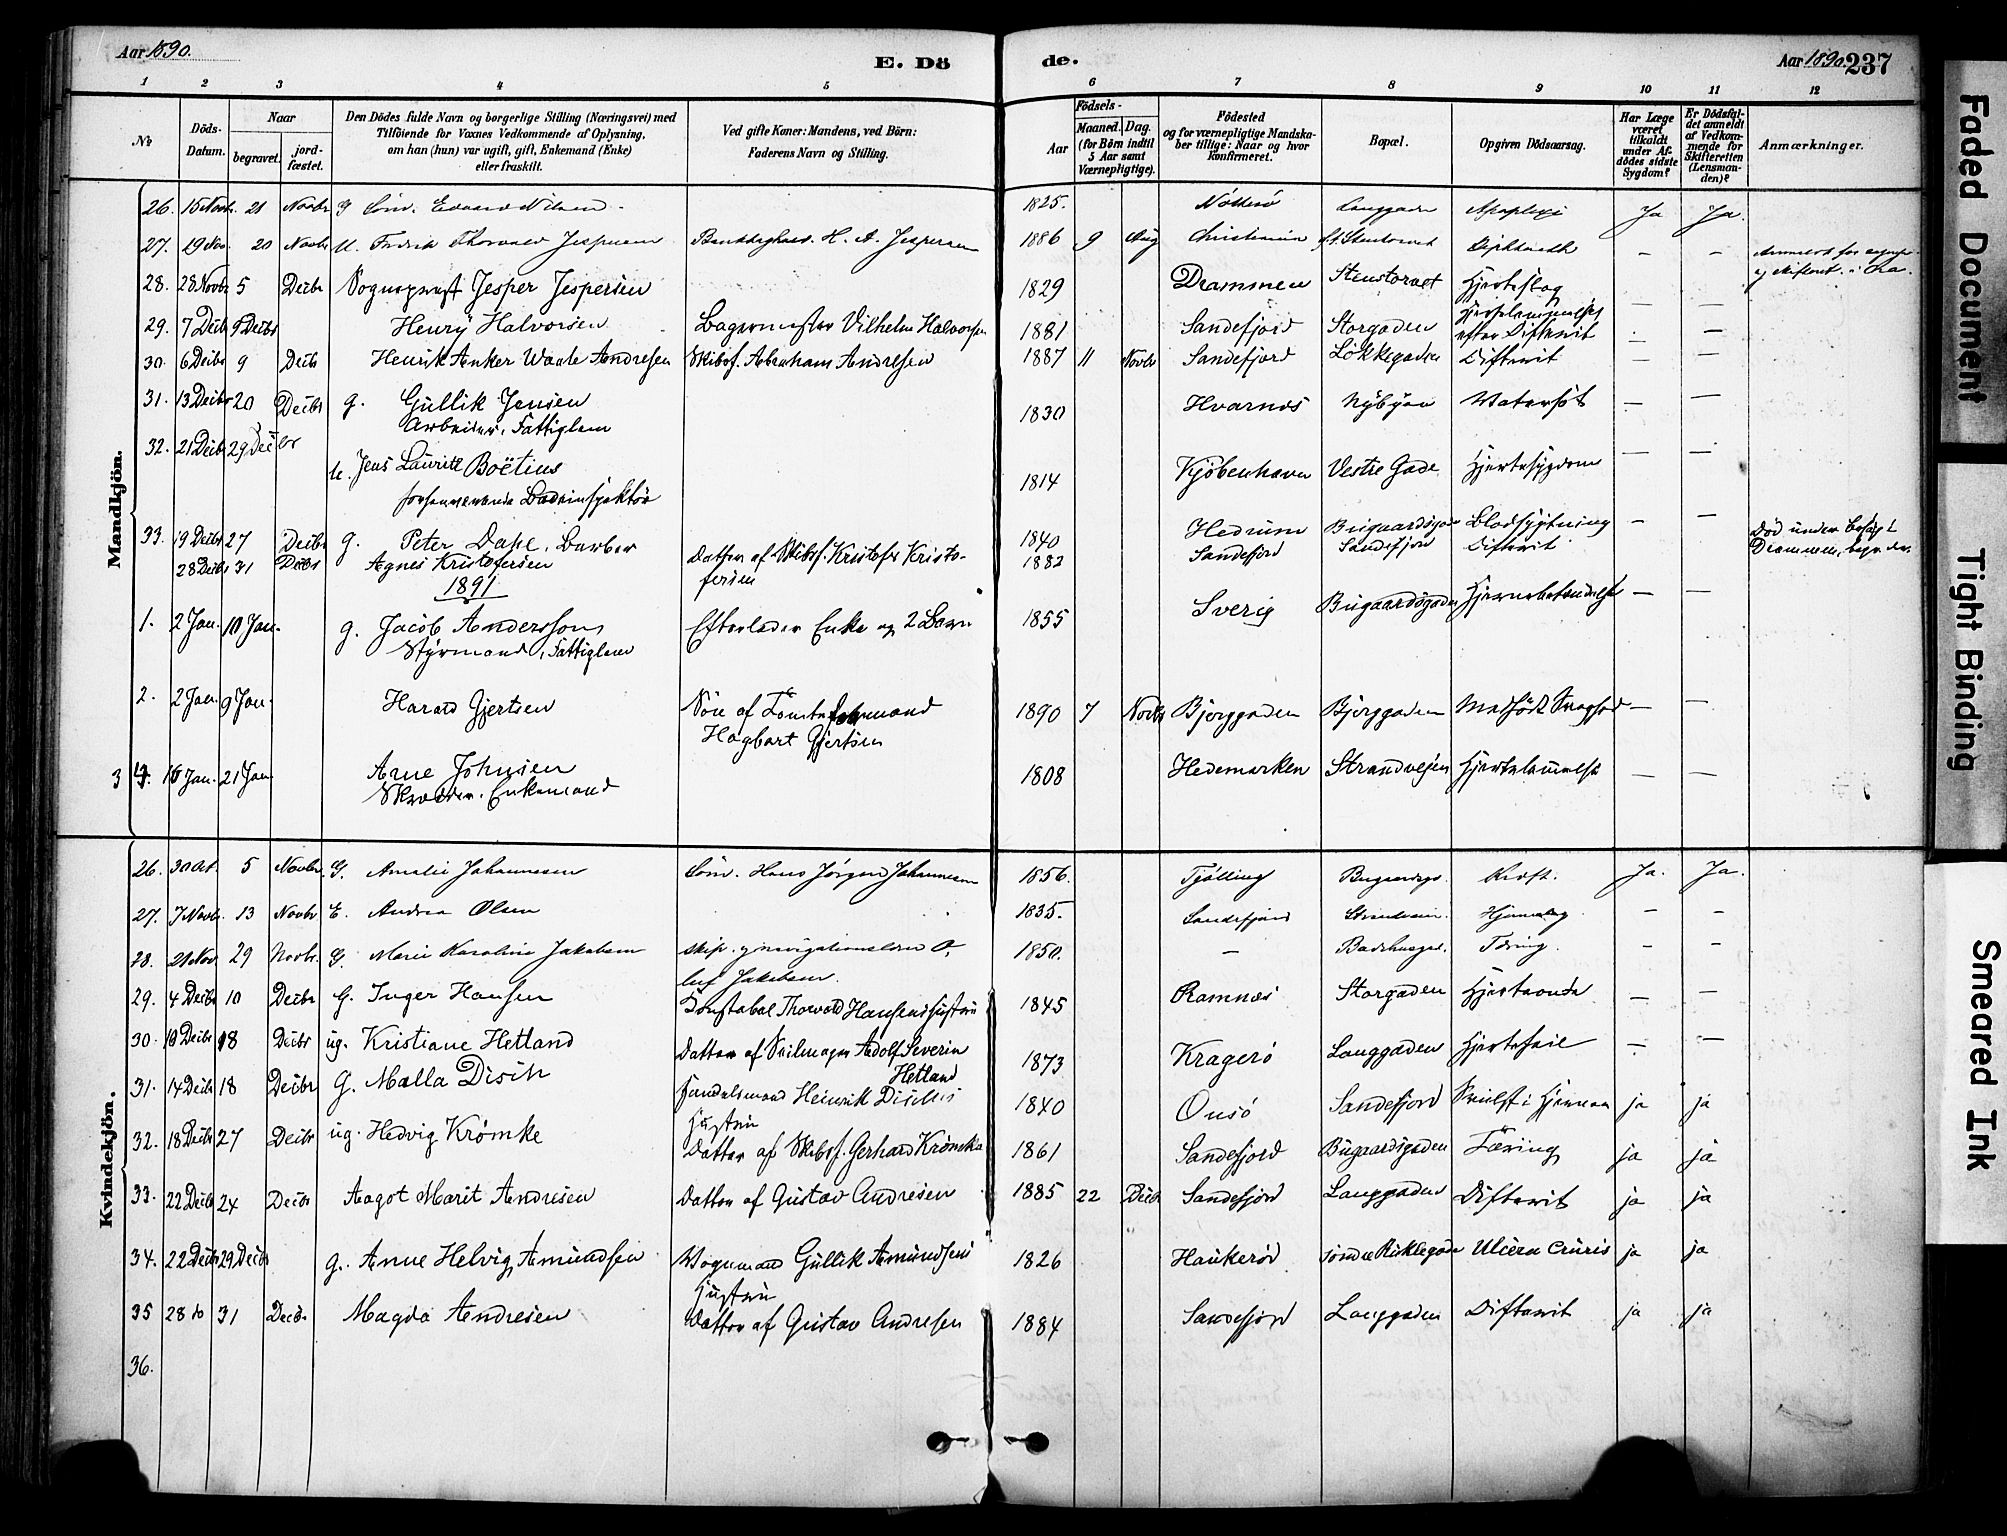 Aar 1890.
E. Dö
de.
Aar 1890. 237
1 2 3 4 5 6 7 8 9 10 11 12
No
Döds-Datum.
Naar
begravet.
jord-fæstet.
Den Dödes fulde Navn og borgerlige Stilling (Næringsvei) med
Tilföiende for Voxnes Vedkommende af Oplysning,
om han (hun) var ugift, gift, Enkemand (Enke)
eller fraskilt.
Ved gifte Koner: Mandens, ved Börn:
Faderens Navn og Stilling.
Födsels-
Aar
Maaned. Dag.
(for Börn indtil
5 Aar samt
Værnepligtige).
Födested
og for værnepligtige Mandska-
ber tillige: Naar og hvor
konfirmeret.
Bopæl.
Opgiven Dödsaarsag.
Har Læge
været
tilkaldt
under Af-
dödes sidste
Sygdom?
Er Dödsfal-
det anmeldt
af Vedkom-
mende for
Skifteretten
(Lensman-
den)?
Anmærkninger.
Mandkjön.
26. 15 Novbr. 21 Novbr G Söm. Edvard Nilsen 1825. Nötterö Langgaden Apoplexi Ja Ja.
27. 19 Nov. 20 Novbr U. Fredrik Thorvald Jespersen H. A. Jespersen 1886 9 Aug Christiania — —
28. 28 Novbr 5 Decbr Sognepræst Jesper Jespersen 1829 Drammen Stenstorvet Hjerteslag — —
29. 7 Decbr 9 Decbr Henry Halvorsen Bagermester Vilhelm Halvorsen 1881 Sandefjord Storgaden Hjertelammelse
efter Difterit — —
30. 6 Decbr 9 Decbr Henrik Anker Waale Andresen Skibsf. Abraham Andresen 1887 11 Novbr Sandefjord Løkkegaden Difterit — —
31. 13 Decbr 20 Decbr g. Gullik Jensen 1830 Hvarnes Nybyen Watersot — —
Arbeider, Fattiglem
32. 21 Decbr 29 Decbr U. Jens Lauritz Boëtius 1814 Kjöbenhavn Vestre Gade Hjertesygdom — —
forhenværende Badeinspektör
33. 19 Decbr 27 Decbr g. Peter Dahl, Barber 1840 Hedrum Bugaardsgaden Blodspytning — — Död under besög i
Drammen, begr. der.
28 Decbr 31 Decbr Agnes Kristofersen Datter af Skibsf. Kristofer Kristo-
fersen 1882 Sandefjord Sandefjord Difterit
1891
1. 2 Jan. 10 Jan. g. Jacob Andersson Efterlader Enke og 2 Børn 1855 Sverig Bugaardsgaden Hjernebetændelse — —
Styrmand, Fattiglem
2. 2 Jan. 9 Jan. Harald Gjertsen Sön af
Hagbart Gjertsen 1890 7 Novbr Bjerggaden Bjerggaden Medfödt Svaghed — —
3 4. 16 Jan. 21 Jan. Arne Johnsen 1808 Hedemarken Strandvejen Hjertelammelse — —
Skrædder. Enkemand
Kvindekjön.
26. 30 Oct. 5 Novbr. G. Amalie Johannesen Söm. Hans Jørgen Johannesen 1856. Tjölling Bugaardsg. Kræft. Ja. Ja.
27. 7 Novbr. 13 Novbr E. Andrea Olsen 1835. Sandefjord Strandveien Hjerneslag — —
28. 21 Nov. 29 Novbr. G. Marie Karoline Jakobsen Skip. og navigationslærer O-
luf Jakobsen. 1850. — Badehusgd. Tæring. — —
29. 4 Decbr 10 Decbr G. Inger Hansen Konstabel Thorvald Hansens hustru 1845 Ramnæs Storgaden Hjerteonde — —
30. 10 Decbr 18 Decbr ug. Kristiane Hetland Datter af Seilmager Adolf Severin
Hetland 1873 Kragerö Langgaden Hjertefeil — —
31. 14 Decbr 18 Decbr G. Malla Disch Handelsmand Heinrik Dischs
Hustru 1840 Onsö Sandefjord Svulst i Hjernen ja ja
32. 18 Decbr 27 Decbr ug. Hedvig Krømke Datter af Skibsf. Gerhard Krømke 1861 Sandefjord Bugaardsgaden Tæring ja ja
33. 22 Decbr 24 Decbr Aagot Marit Andresen Datter af Gustav Andresen 1885 22 Decbr Sandefjord Langgaden Difterit ja ja
34. 22 Decbr 29 Decbr g. Anne Helvig Amundsen Vognmand Gullik Amundsens
Hustru 1826 Haukeröd Söndre Ulcera Cruris ja ja
35 28 do 31 Decbr Magda Andresen Datter af Gustav Andresen 1884 Sandefjord Langgaden Difterit ja ja
36.
Faded Document
Tight Binding
Smeared Ink